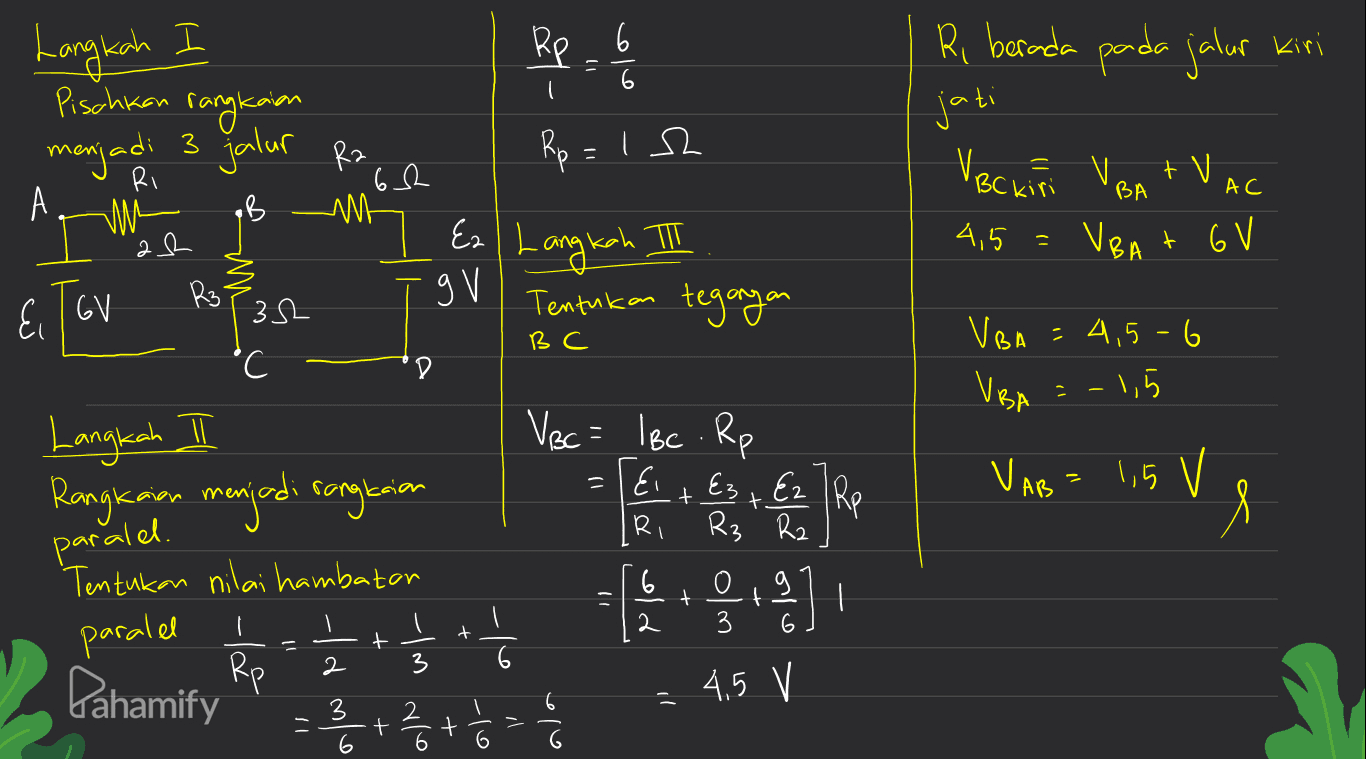 Langkah I
Pisahkan rangkaian
menjadi 3 jalur
R1 R2
A 2Ω B 6Ω
ε1 6V R3 3Ω ε2 9V
C D
Langkah II
Rangkaian menjadi rangkaian
paralel.
Tentukan nilai hambatan
paralel 1/Rp = 1/2 + 1/3 + 1/6
= 3/6 + 2/6 + 1/6 = 6/6
Pahamify
Rp/1 = 6/6
Rp = 1 Ω
Langkah III
Tentukan tegangan
BC
VBC = IBC . Rp
= [ε1/R1 + ε3/R3 + ε2/R2] Rp
= [6/2 + 0/3 + 9/6] 1
= 4,5 V
R1 berada pada jalur kiri
jati
VBC kiri = VBA + VAC
4,5 = VBA + 6V
VBA = 4,5 - 6
VBA = - 1,5
VAB = 1,5 V